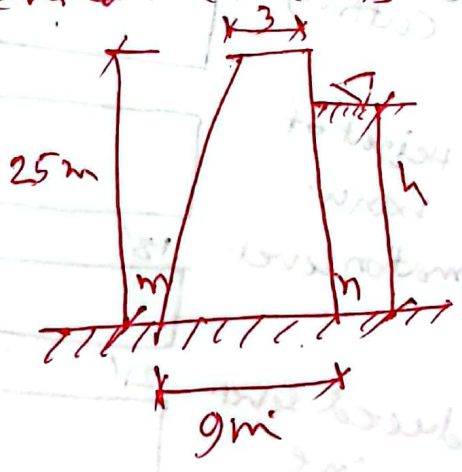 3
25m
h
m
n
9m